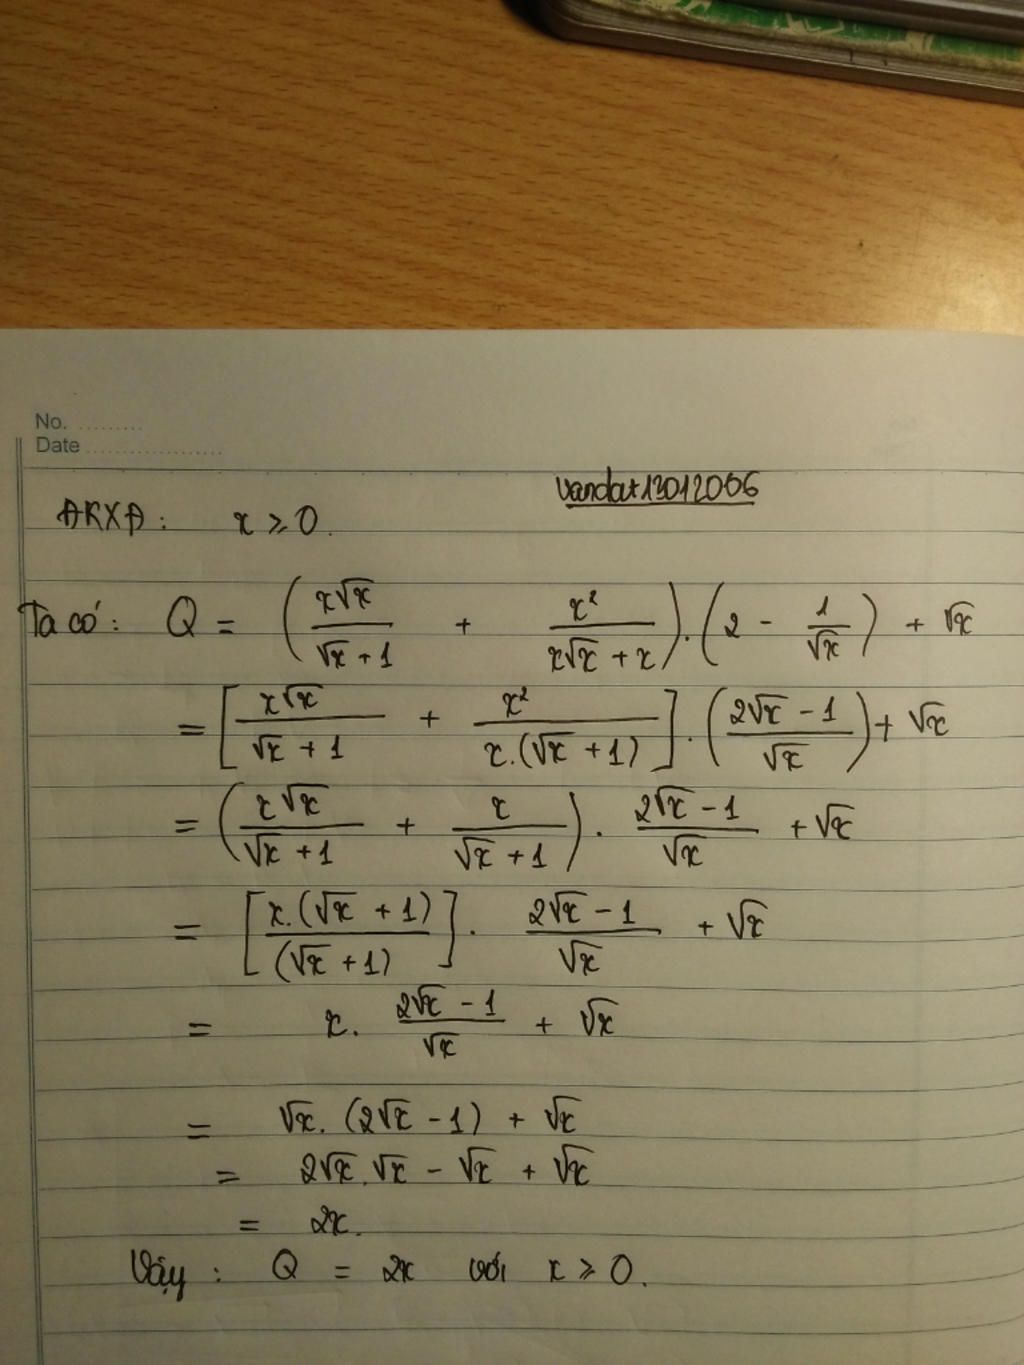 No. .........
Date ...................
vandat13012006
ĐKXĐ : x ⩾ 0.
Ta có : Q = (x√x / (√x + 1) + x² / (x√x + x)) . (2 - 1/√x) + √x
= [x√x / (√x + 1) + x² / (x.(√x + 1))] . ((2√x - 1) / √x) + √x
= (x√x / (√x + 1) + x / (√x + 1)) . (2√x - 1) / √x + √x
= [x.(√x + 1) / (√x + 1)] . (2√x - 1) / √x + √x
= x. (2√x - 1) / √x + √x
= √x. (2√x - 1) + √x
= 2√x.√x - √x + √x
= 2x.
Vậy : Q = 2x với x ⩾ 0.